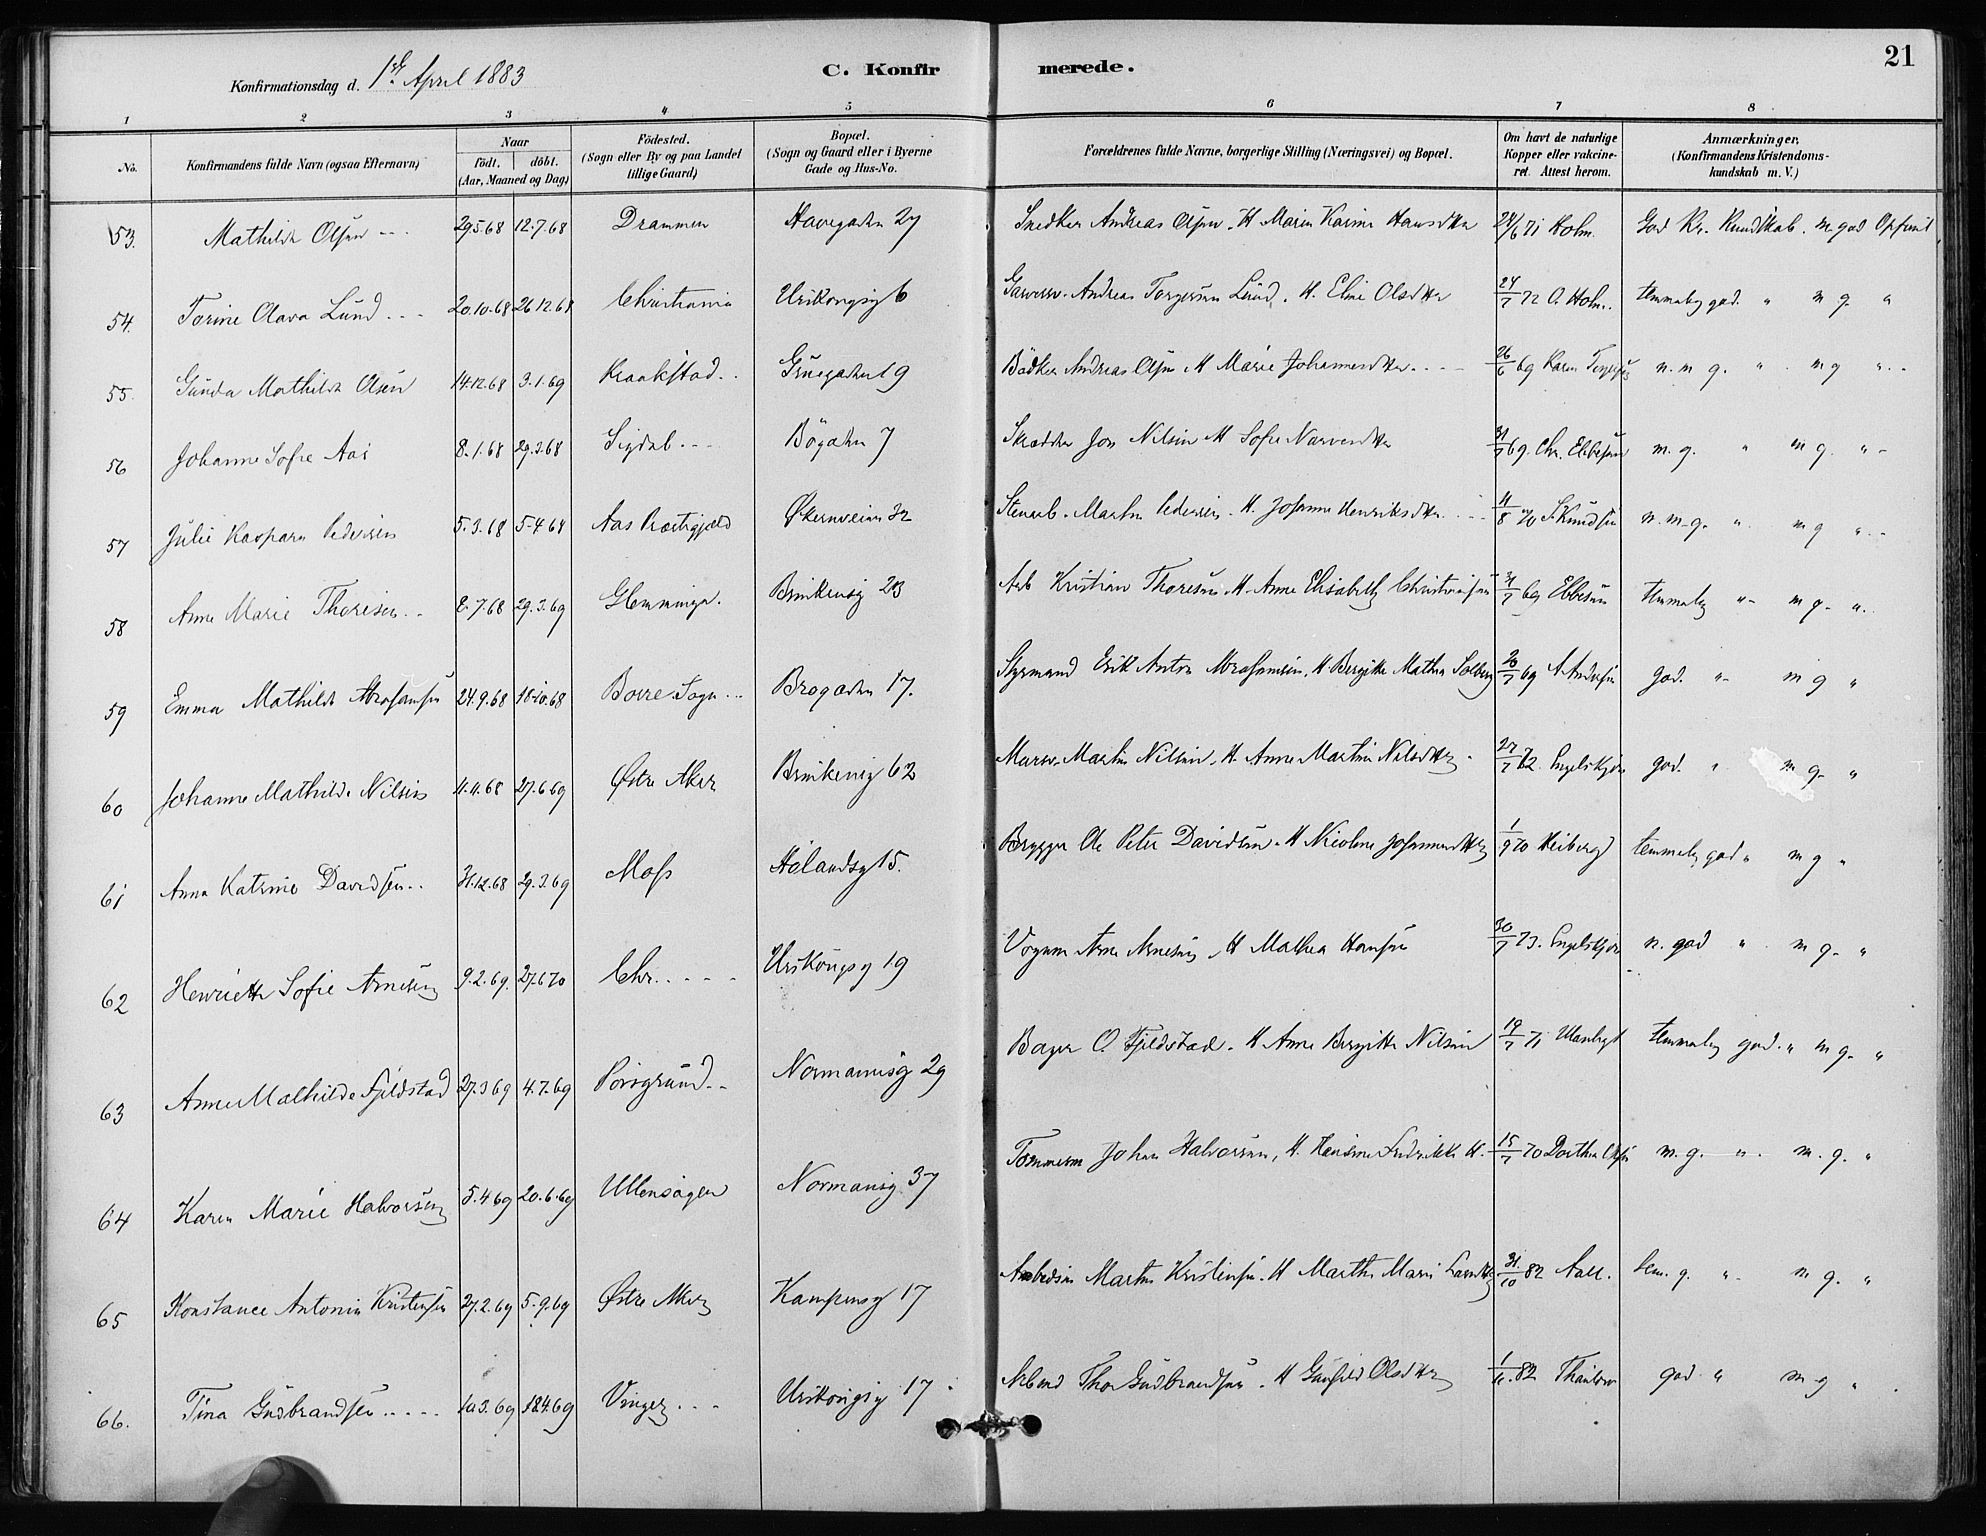 21
Konfirmationsdag d. 1ste April 1883
C. Konfirmerede.
1 2 3 4 5 6 7 8
No. Konfirmandens fulde Navn (ogsaa Efternavn) Naar födt. döbt. (Aar, Maaned og Dag) Födested. (Sogn eller By og paa Landet tillige Gaard) Bopæl. (Sogn og Gaard eller i Byerne Gade og Hus-No. Forældrenes fulde Navne, borgerlige Stilling (Næringsvei) og Bopæl. Om havt de naturlige Kopper eller vakcineret. Attest herom. Anmærkninger. (Konfirmandens Kristendomskundskab m. V.)
53. Mathilde Olsen 29.5.68 12.7.68 Drammen Havegaden 27 Snedker Andreas Olsen. H. Maren Karine Hansdtter 24/6 71 Holm. God Kr. Kundskab. m. god Opførsel
54. Torine Olava Lund 20.10.68 26.12.68 Christiania Urtkongsg 6 Andreas Torgersen Lund. H. Eline Olsdtter 24/7 72 O. Holm. temmelig god. " m g. "
55. Gunda Mathilde Olsen 14.12.68 3.1.69 Kraakstad Gruegaden 19 Bödker Andreas Olsen H Marie Johannesdtter 26/6 69 Karen n. m g. " m g "
56 Johanne Sofie Aas 8.1.68 29.3.68 Sigdal Bögaden 7 Skrædder Jon Nilsen H Sofie 31/7 69. Chr. Ebbesen m. g. " m g. "
57 Julie Kaspara Pedersen 5.3.68 5-4 68 Aas Præstegjæld Økernveien 32 Stenarb. Martin Pedersen. H. Johanne Henriksdtter 11/8 70 Knudsen n. m. g. " m g "
58 Anne Marie Thoresen 8.7.68 29.3.69 Glemminge. Brinkensg 23 Arb Kristian Thoresen H. Anne Elisabeth Christiansen 31/7 69 Ebbesen temmelig " m g. "
59 Emma Mathilde Abrahamsen 24.9.68 18.10.68 Borre Sogn Brogaden 17. Styrmand Erik Anton Abrahamsen. H Bergitte Mathea Solberg 20/7 69 A Andersen god. " m g "
60 Johanne Mathilde Nilsen 11.11.68 27.6.69 Østre Aker Brinkensg 62 Murer. Martin Nilsen. H. Anne Martine Nilsdtter 27/7 72. Engelskjøn god. " m g. "
61 Anna Katrine Davidsen 31.12.68 29.3.69 Moss Hölandsg 15. Brygger Ole Peter Davidsen. H Nicoline Johannesdtter 1/9 70 Heiberg temmelig god " m g "
62 Henriette Sofie Arnesen 9.2.69. 27.6 70 Chr. Urtkongsg 19 Vognm Arne Arnesen H Mathea Hansen 30/7 73. Engelskjøn n. god " m g. "
63 Anne Mathilde Fjeldstad 27.3 69 4.7.69 Porsgrund Normannsg 29 Bager O. Fjeldstad. H Anne Bergitte Nilsen 19/7 71 temmelig god. " m g. "
64 Karen Marie Halvorsen 5.4 69 20.6.69 Ullensager Normansg 37 Tömmerm Johan Halvorsen, H. Fredrikke H. 15/7 70 Dorthea Olsen m. g. " m. g. "
65 Konstance Antonie Kristensen 27.2.69 5.9.69 Østre Aker Kampensg 17 Martin Kristensen. H Marthe Marie 31/10 82 Aall. tem. g. " m g. "
66. Tina Gudbrandsen 10.3.69 18.4.69 Vinger Urtkongsg 17 Arbmd Thor Gudbrandsen. H Gunhild Olsdtter 1/11 82 Thaulow god " m g "